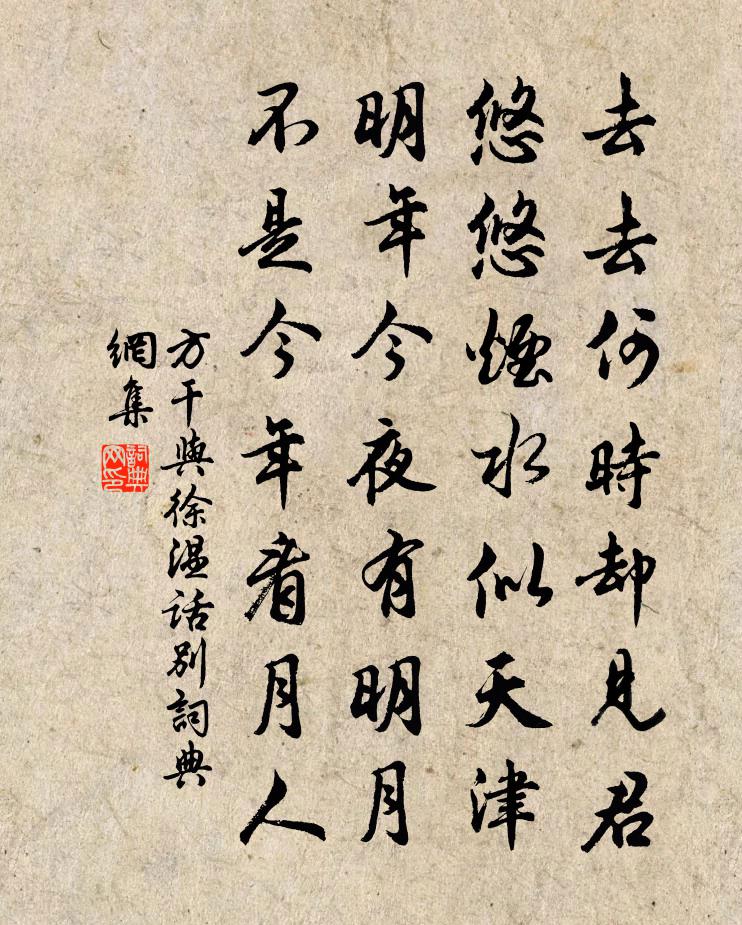 去去何時却見君
悠悠煙水似天津
明年今夜有明月
不是今年看月人
方干與徐溫話別詞典
網集
詞典
网印